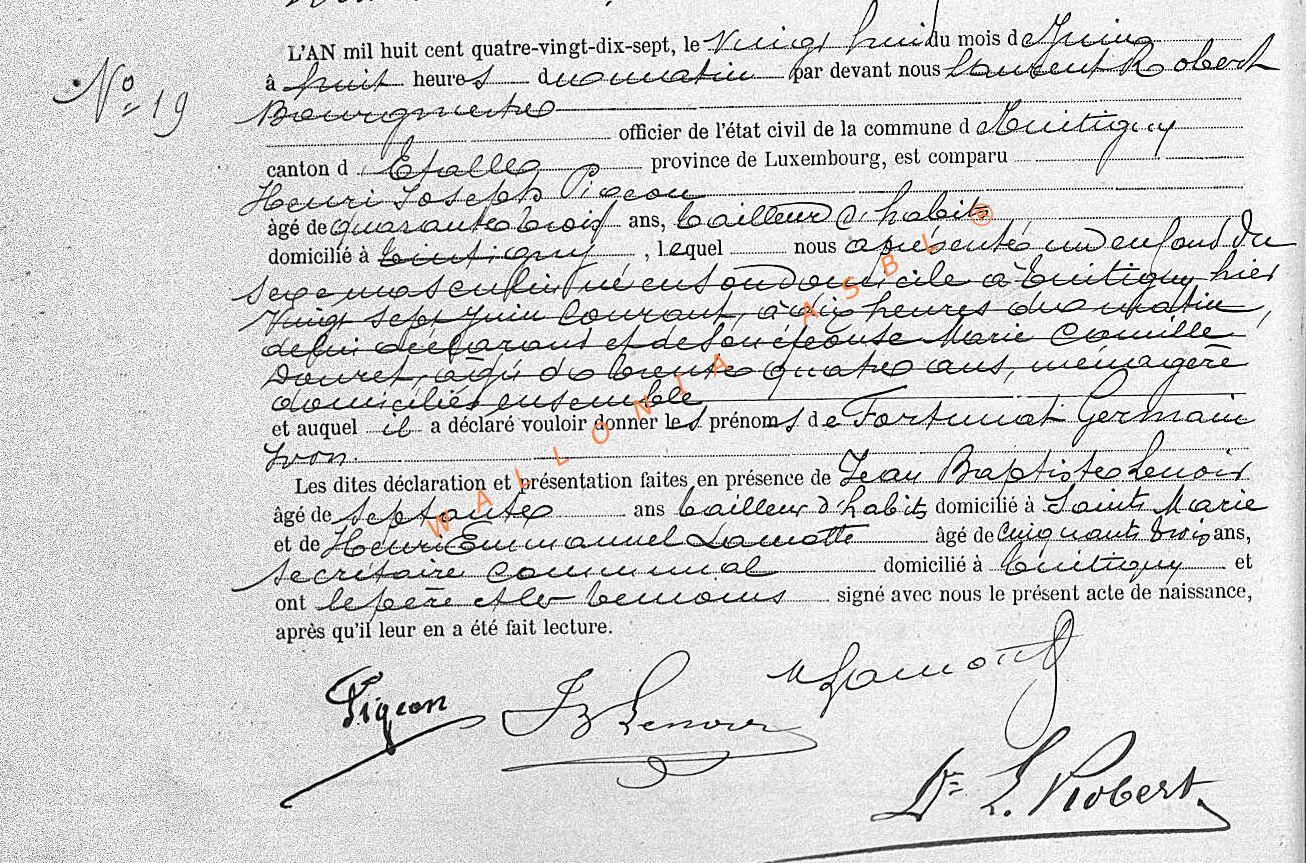 L'AN mil huit cent quatre-vingt-dix-sept, le Vingt huit du mois de Juin
No 19
à huit heures du matin par devant nous Laurent Robert
Bourgmestre
officier de l'état civil de la commune d Tintigny
canton d Etalle province de Luxembourg, est comparu
Henri Joseph Pigeon
âgé de quarante trois ans, tailleur d'habits
domicilié à Tintigny, lequel nous a présenté un enfant du
sexe masculin né en son domicile à Tintigny hier
Vingt sept Juin Courant, à dix heures du matin,
de lui déclarant et de son épouse Marie Camille
Douret, agée de trente quatre ans, ménagère
domiciliés ensemble
et auquel il a déclaré vouloir donner les prénoms de Fortunat Germain
Yvon.
Les dites déclaration et présentation faites en présence de Jean Baptiste Lenoir
âgé de septante ans tailleur d'habits domicilié à Sainte Marie
et de Henri Emmanuel Lamotte âgé de cinquante trois ans,
secrétaire communal domicilié à Tintigny et
ont le père et les témoins signé avec nous le présent acte de naissance,
après qu'il leur en a été fait lecture.
WALLONIA ASBL ®
Pigeon JB Lenoir Lamotte
Dr L. Robert